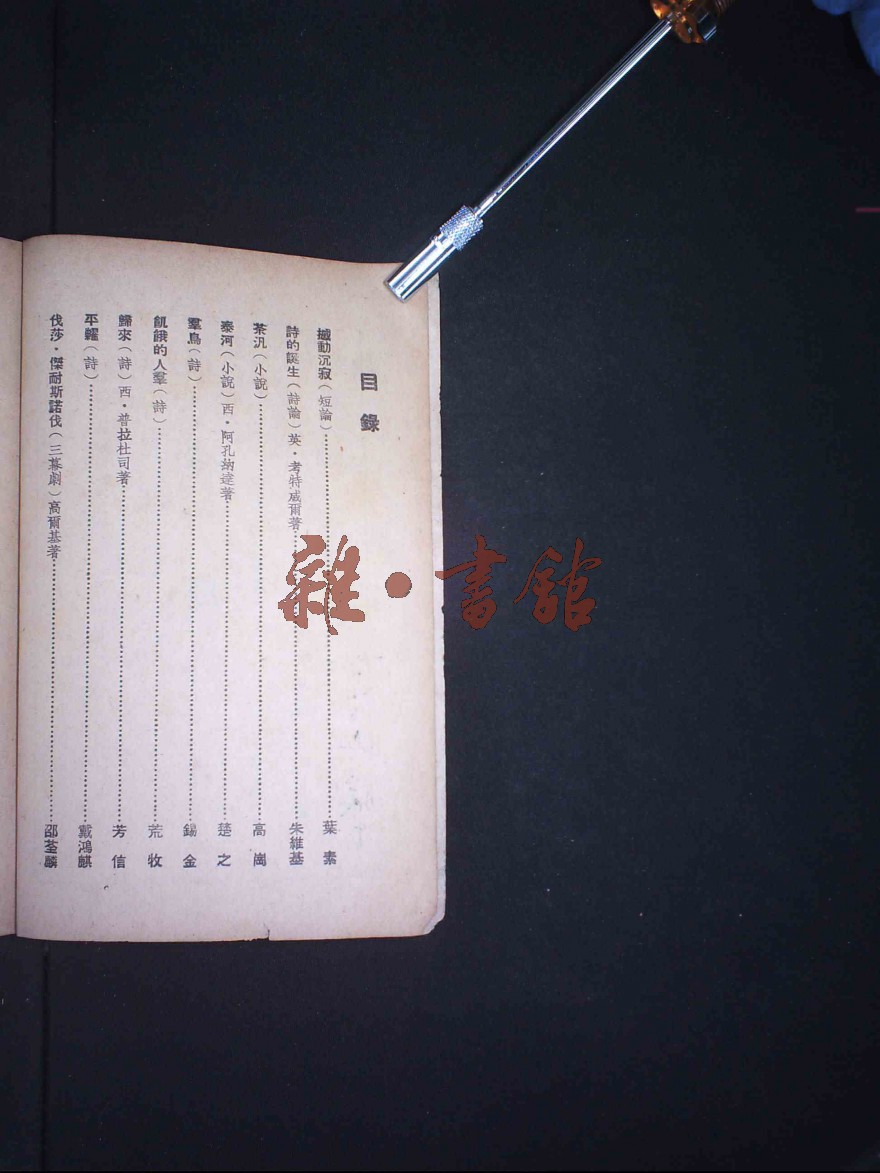 目錄
撼動沉寂（短論）…………葉素
詩的誕生（詩論）英・考特威爾著…………朱維基
茶汎（小說）…………高崗
泰河（小說）西・阿孔納達著…………楚之
羣鳥（詩）…………錫金
飢餓的人羣（詩）…………荒牧
歸來（詩）西・普拉杜司著…………芳信
平糶（詩）…………戴鴻麒
伐莎・傑耐斯諾伐（三幕劇）高爾基著…………邵荃麟
雜・書館